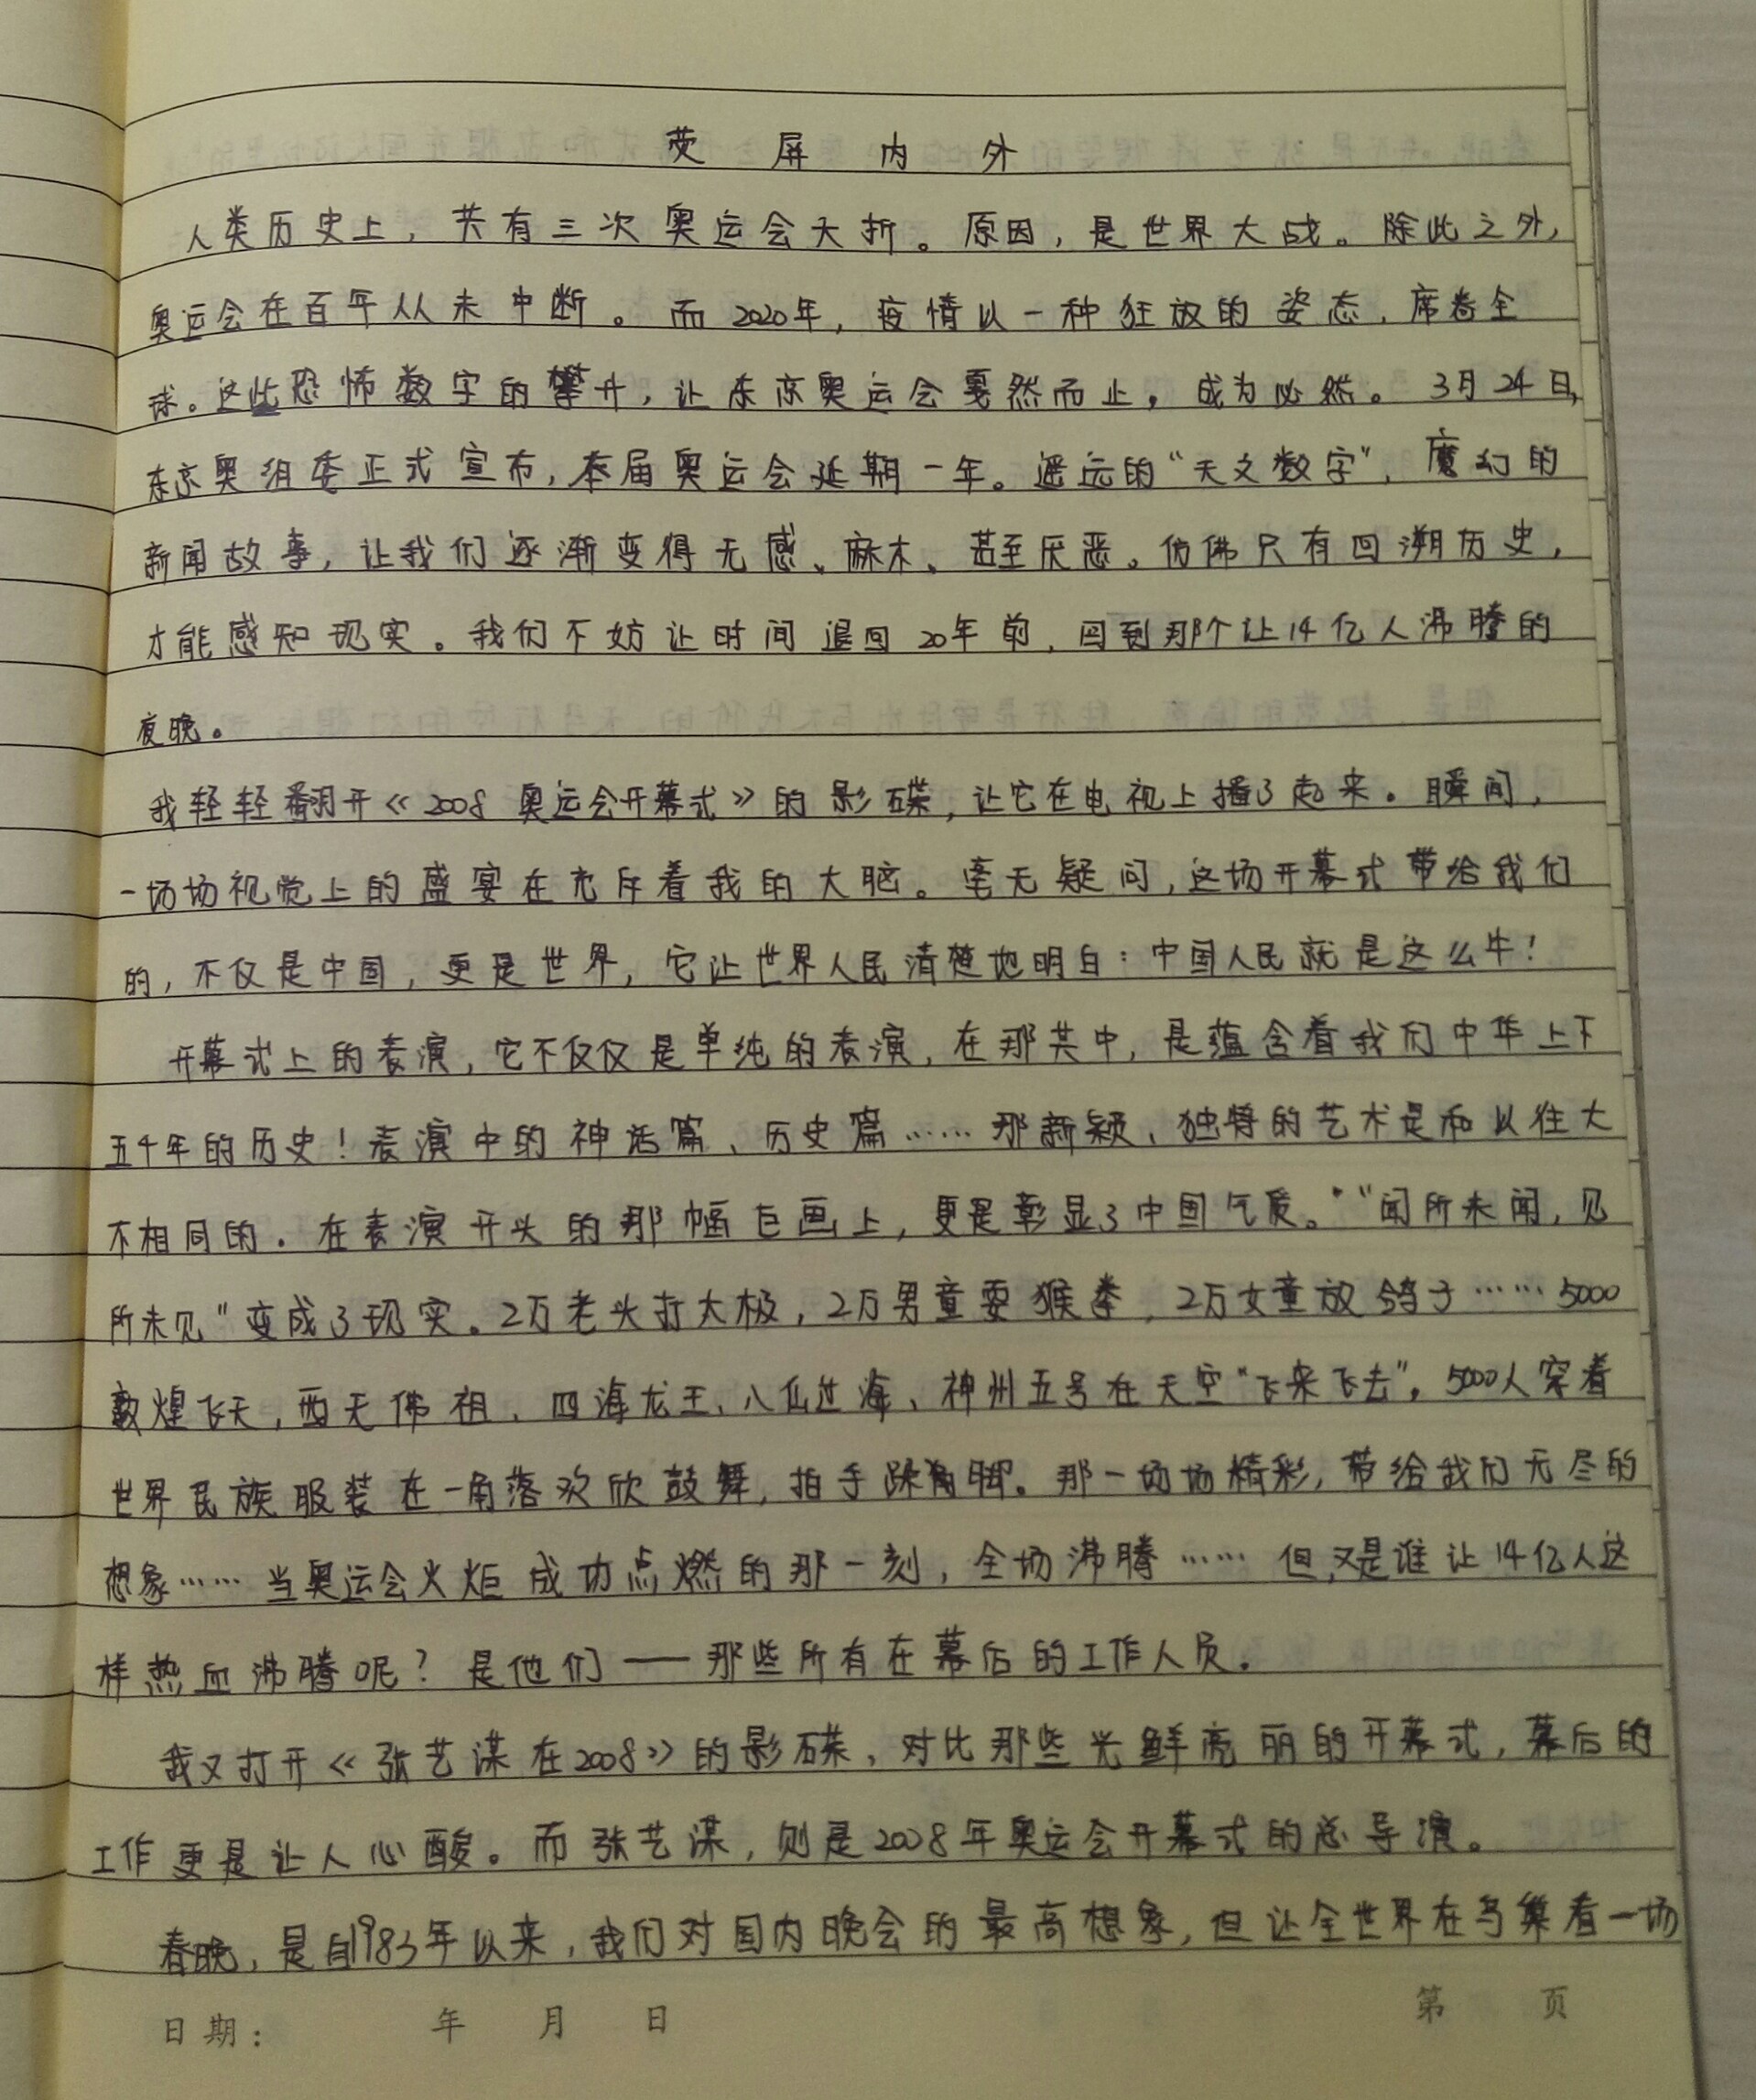 荧屏内外
人类历史上，共有三次奥运会夭折。原因，是世界大战。除此之外，
奥运会在百年从未中断。而2020年，疫情以一种狂放的姿态，席卷全
球。这些恐怖数字的攀升，让东京奥运会戛然而止，成为必然。3月24日，
东京奥组委正式宣布，本届奥运会延期一年。遥远的“天文数字”，魔幻的
新闻故事，让我们逐渐变得无感、麻木、甚至厌恶。仿佛只有回溯历史，
才能感知现实。我们不妨让时间退回20年前，回到那个让14亿人沸腾的
夜晚。
我轻轻翻开《2008 奥运会开幕式》的影碟，让它在电视上播了起来。瞬间，
一场场视觉上的盛宴在充斥着我的大脑。毫无疑问，这场开幕式带给我们
的，不仅是中国，更是世界，它让世界人民清楚地明白：中国人民就是这么牛！
开幕式上的表演，它不仅仅是单纯的表演，在那其中，是蕴含着我们中华上下
五千年的历史！表演中的神话篇、历史篇……那新颖、独特的艺术是和以往大
不相同的。在表演开头的那幅巨画上，更是彰显了中国气质。“闻所未闻，见
所未见”变成了现实。2万老头打太极，2万男童耍猴拳，2万女童放鸽子……5000
敦煌飞天，西天佛祖、四海龙王、八仙过海、神州五号在天空“飞来飞去”，5000人穿着
世界民族服装在一角落欢欣鼓舞，拍手跺脚。那一场场精彩，带给我们无尽的
想象……当奥运会火炬成功点燃的那一刻，全场沸腾……但又是谁让14亿人这
样热血沸腾呢？是他们——那些所有在幕后的工作人员。
我又打开《张艺谋在2008》的影碟，对比那些光鲜亮丽的开幕式，幕后的
工作更是让人心酸。而张艺谋，则是2008年奥运会开幕式的总导演。
春晚，是自1983年以来，我们对国内晚会的最高想象，但让全世界在鸟巢看一场
日期： 年 月 日 第 页